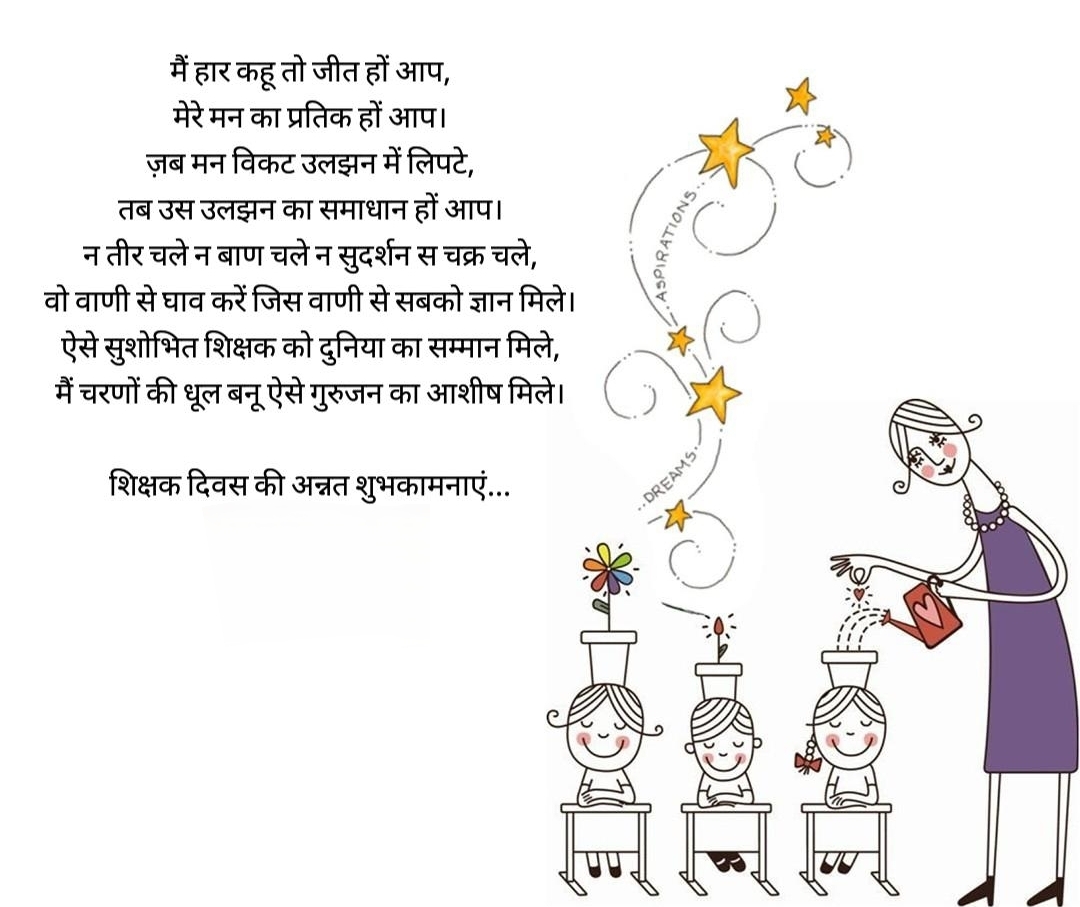 मैं हार कहू तो जीत हों आप,
मेरे मन का प्रतिक हों आप।
ज़ब मन विकट उलझन में लिपटे,
तब उस उलझन का समाधान हों आप।
न तीर चले न बाण चले न सुदर्शन स चक्र चले,
वो वाणी से घाव करें जिस वाणी से सबको ज्ञान मिले।
ऐसे सुशोभित शिक्षक को दुनिया का सम्मान मिले,
मैं चरणों की धूल बनू ऐसे गुरुजन का आशीष मिले।
शिक्षक दिवस की अन्नत शुभकामनाएं...
ASPIRATIONS
DREAMS